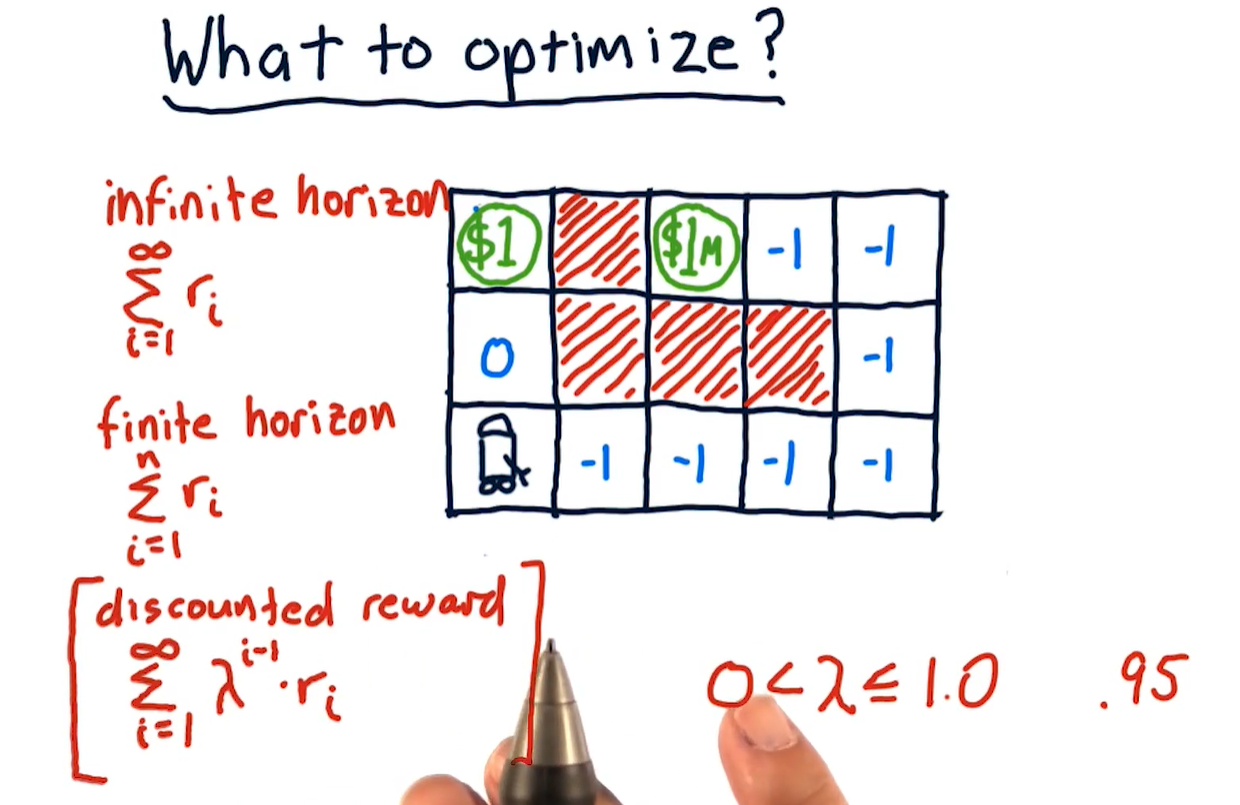 What to optimize?
infinite horizon
∞
Σ rᵢ
i=1
finite horizon
n
Σ rᵢ
i=1
discounted reward
∞
Σ λⁱ⁻¹·rᵢ
i=1
$1 $1M -1 -1
0 -1
-1 -1 -1 -1
0<λ≤1.0 .95